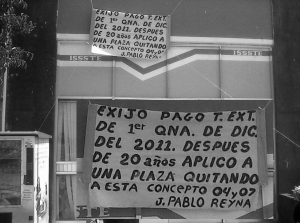 EXIJO PAGO T. EXT.
DE 1er QNA. DE DIC.
DEL 2011. DESPUES
DE 20 años APLICO A
UNA PLAZA QUITANDO
A ESTA CONCEPTO 04,07
J. PABLO REYNA
ISSSTE
ISSSTE
EXIJO PAGO T. EXT.
DE 1er QNA. DE DIC.
DEL 2011. DESPUES
DE 20 años APLICO A
UNA PLAZA QUITANDO
A ESTA CONCEPTO 04,07
J. PABLO REYNA